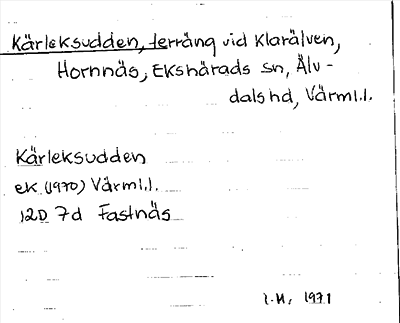 Kärleksudden, terräng vid Klarälven,
Hornnäs, Ekshärads sn, Älv-
dals hd, Värml.l.
Kärleksudden
ek. (1970) Värml.l.
12D 7d Fastnäs
I.H. 1971